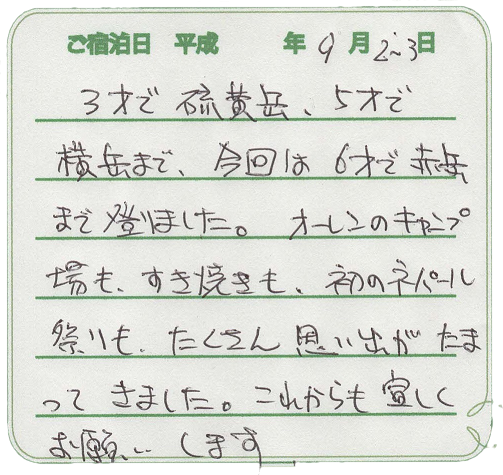 ご宿泊日 平成 年9月2~3日
3才で 硫黄岳、5才で
横岳まで、今回は 6才で赤岳
まで登りました。オーレンのキャンプ
場も、すき焼きも、初のネパール
祭りも、たくさん思い出がたま
って きました。これからも宜しく
お願いします